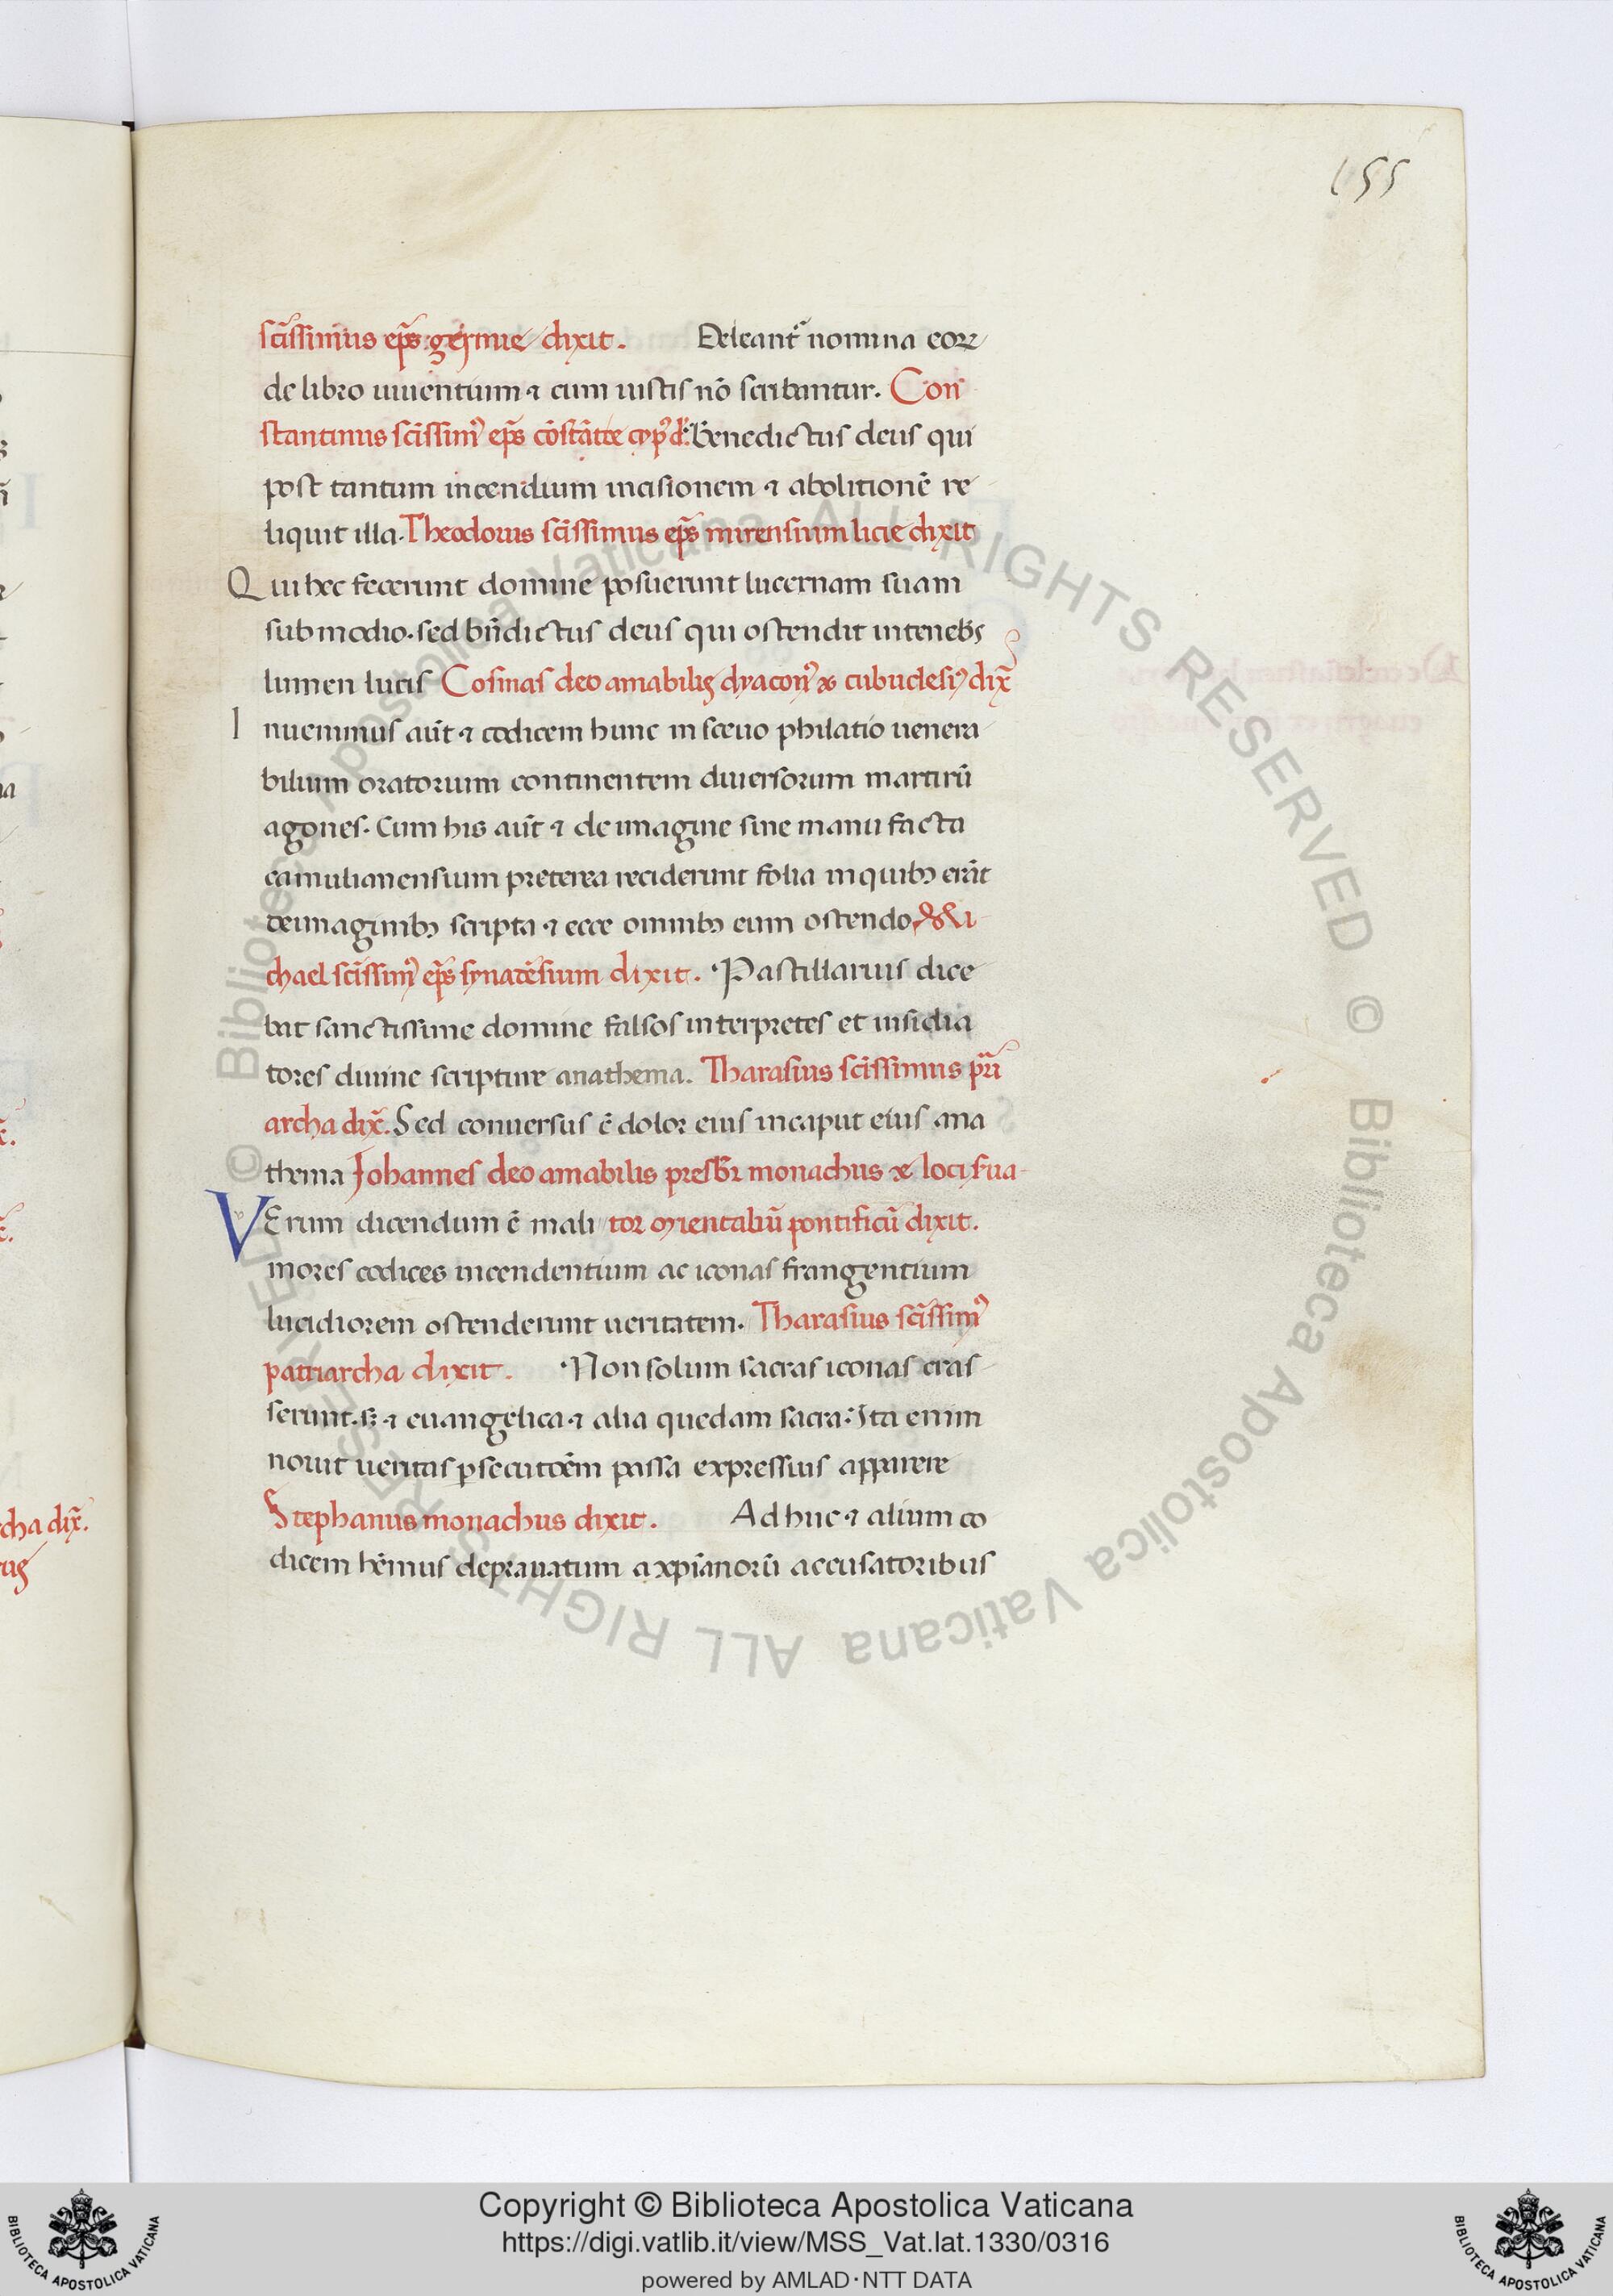 155
scissimus eps germie dixit. Deleant nomina eorꝝ
de libro uiuentium ⁊ cum iustis nō scribantur. Con
stantinus scissim9 eps cōstātie cyp9 d. Benedictus deus qui
post tantum incendium incisionem ⁊ abolitionē re
liquit illa. Theodorus scissimus eps mirensium licie dixit
Qui hec fecerunt domine posuerunt lucernam suam
sub modio. sed bn̄dictus deus qui ostendit in tenebs
lumen lucis Cosmas deo amabilis dyacon9 ⁊ cubuclesi9 dix̄
Inuenimus aūt ⁊ codicem hunc in sceuo philatio uenera
bilium oratorium continentem diuersorum martirū
agones. Cum his aūt ⁊ de imagine sine manu facta
camulianensium preterea reciderunt folia in quibꝫ erāt
de imaginibꝫ scripta ⁊ ecce omnibꝫ eum ostendo Mi
chael scissim9 eps synatēsium dixit. Pastillarius dice
bat sanctissime domine falsos interpretes et insidia
tores diuine scripture anathema. Tharasius scissimus pri
archa dix̄. Sed conuersus ē dolor eius in caput eius ana
thema Johannes deo amabilis presbr monachus ⁊ loci serua
Verum dicendum ē mali tor orientaliū pontificū dixit.
mores codices incendentium ac iconas frangentium
lucidiorem ostenderunt ueritatem. Tharasius scissim9
patriarcha dixit. Non solum sacras iconas eras
serunt. sꝫ ⁊ euangelica ⁊ alia quedam sacra: Ita enim
nouit ueritas psecutōem passa expressius apparere
Stephanus monachus dixit. Adhuc ⁊ alium co
dicem hēmus deprauatum a xpianorū accusatoribus
cha dix̄.
Copyright © Biblioteca Apostolica Vaticana
https://digi.vatlib.it/view/MSS_Vat.lat.1330/0316
powered by AMLAD·NTT DATA
BIBLIOTECA APOSTOLICA VATICANA
BIBLIOTECA APOSTOLICA VATICANA
© Biblioteca Apostolica Vaticana ALL RIGHTS RESERVED © Biblioteca Apostolica Vaticana ALL RIGHTS RESERVED